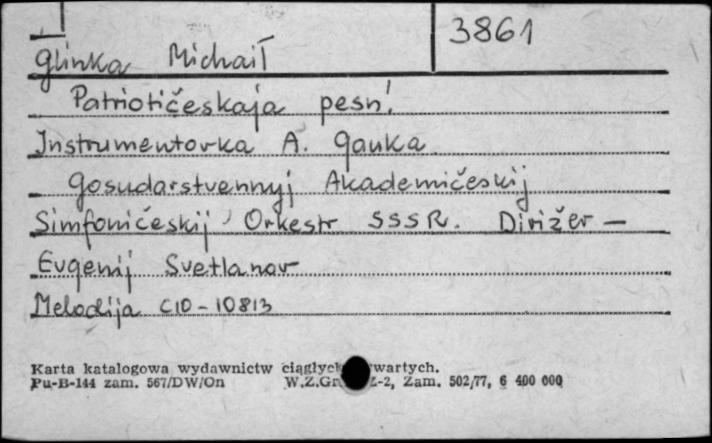 3861
Glinka Michaił
Patriotičeskaja pesn'.
Instrumentovka A. Gauka
Gosudarstvennyj Akademičeskij
Simfoničeskij Orkestr SSSR. Dirižer —
Evgenij Svetlanov
Melodija C10-10813
Karta katalogowa wydawnictw ciągłych
Pu-B-144 zam. 567/DW/On W.Z.Gr. Z-2, Zam. 502/77, 6 400 000